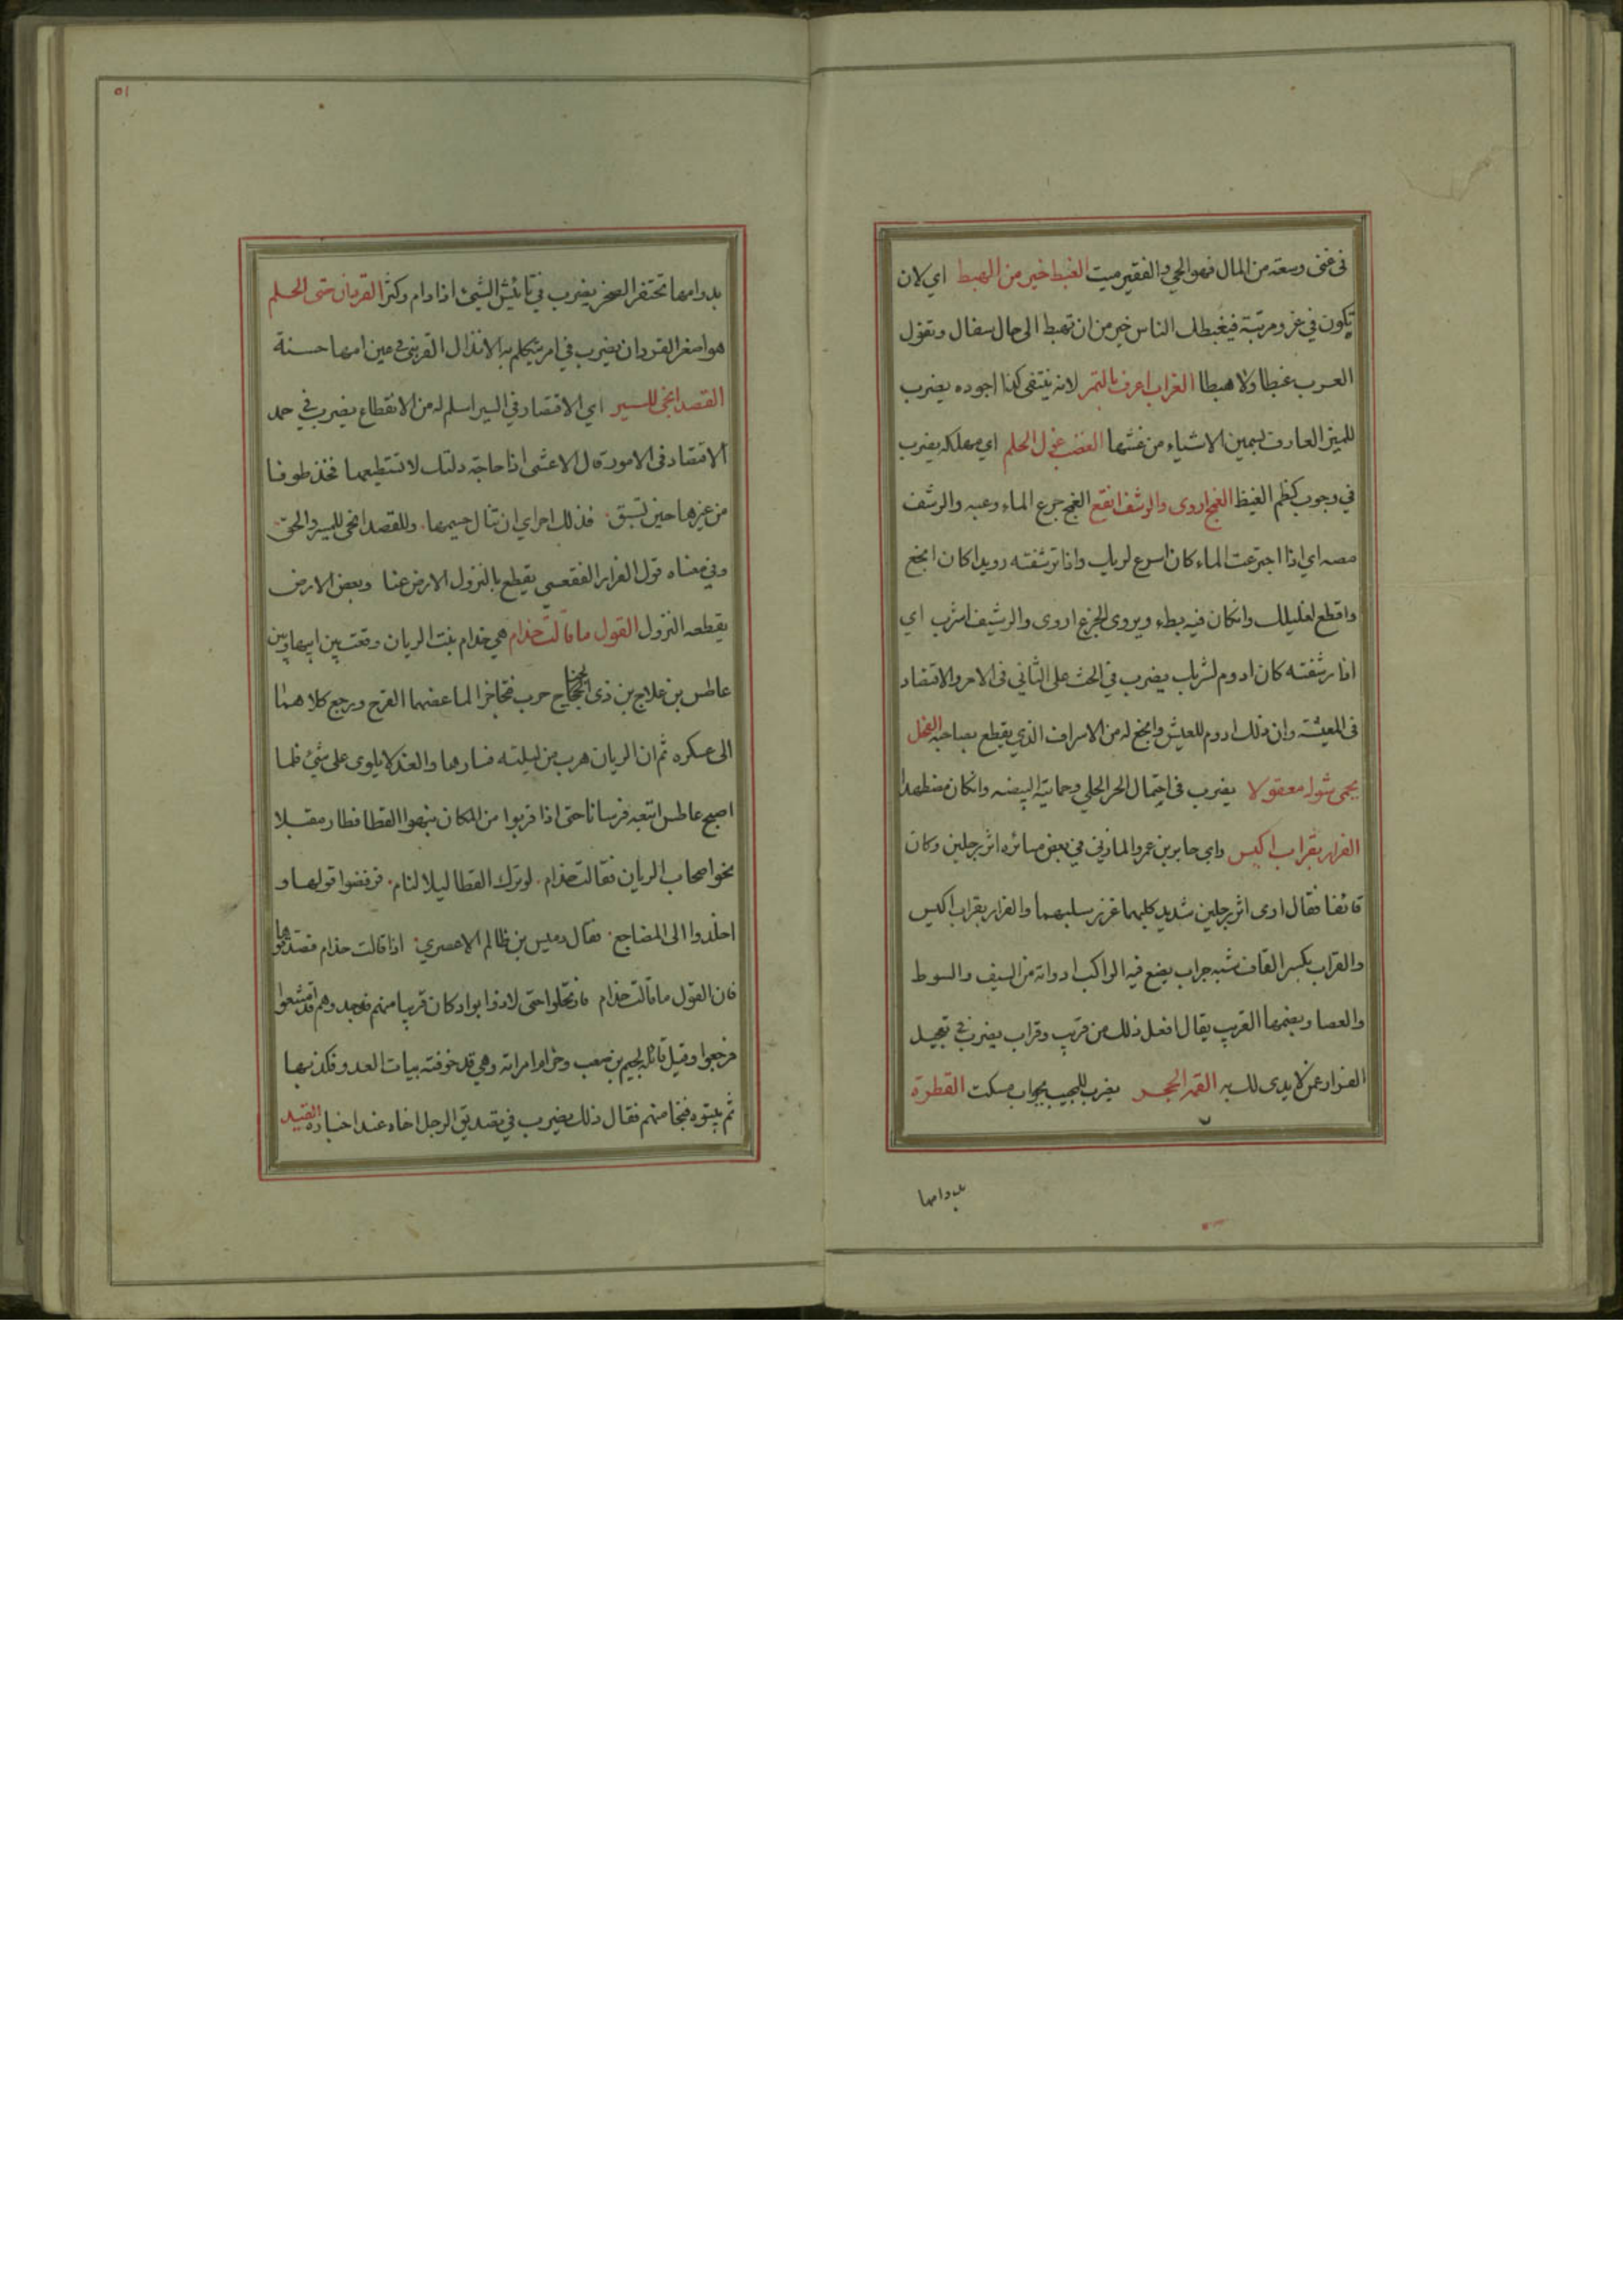 فى غنى وسعة من المال فهو الحي والفقير ميت الغبط خير من الهبط اي لان
تكون في عز ومرتبة فيغبطك الناس خير من ان تهبط الى حال سفال وتقول
العرب غبطا ولا هبطا الغراب اعرف بالتمر لانه ينتقى كذا اجوده يضرب
للميز العارف بسمين الاشياء من غشها الغضب غول الحلم اي مهلكه يضرب
في وجوب كظم الغيظ الغمج اروى والرشف انقع الغمج جرع الماء وعبه والرشف
مصه اي اذا اجترعت الماء كان اسرع لريك واذا ترشفته رويدا كان انجع
واقطع لغليلك وانكان فيه بطء ويروى الجرع اروى والرشيف اشرب اي
اذا رشفته كان ادوم لشربك يضرب في الحث على التأنى فى الامر والاقتصاد
فى المعيشة وان ذلك ادوم للعيش وانجع له من الاسراف الذي يقطع بصاحبه الفحل
يحمى شوله معقولا يضرب فى احتمال الحر الجلي وحماية البيضه وانكان مضطهدا
الفرار بقراب اكيس راى جابر بن عمرو المازنى في بعض مسائره اثر رجلين وكان
قائفا فقال ارى اثر رجلين شديد كلبهما عزيز سلبهما والفرار بقراب اكيس
والقراب بكسر القاف شبه جراب يضع فيه الراكب ادواته من السيف والسوط
والعصا وبضمها القريب يقال افعل ذلك من قريب وقراب يضرب في تعجيل
الفرار عمن لا يدى لك به القمه الحجر يضرب للمجيب بجواب مسكت القطرة
بدوامها
٥١
بدوامها تحتفر الصخر يضرب في تأثير الشيئ اذا دام وكثر القردان حتى الحلم
هو اصغر القردان يضرب في امر يتكلم به الانذال القرنبى في عين امها حسنة
القصد انجى للسير اي الاقتصاد في السير اسلم له من الانقطاع يضرب في حمد
الاقتصاد فى الامور قال الاعشى اذا حاجة ولتك لا تستطيعها فخذ طرفا
من غيرها حين تسبق فذلك احرى ان تنال جسيمها وللقصد انجى للسير والحق
وفي معناه قول الفرار الفقعسي يقطع بالنزول الارض عنا وبعض الارض
يقطعه النزول القول ما قالت حذام هي حذام بنت الريان وقعت بين ابيها وبين
عاطس بن علاج بن ذى الجناح حرب فتحاجزا لما عضهما القرح ورجع كلاهما
الى عسكره ثم ان الريان هرب من ليلته فسارها والغد لا يلوى على شئ فلما
اصبح عاطس اتبعه فرسانا حتى اذا قربوا من المكان نبهوا القطا فطار مقبلا
نحو اصحاب الريان فقالت حذام لو ترك القطا ليلا لنام فرفضوا قولها و
اخلدوا الى المضاجع فقال دميس بن ظالم الاعصري اذا قالت حذام فصدقوها
فان القول ما قالت حذام فارتحلوا حتى لاذوا بواد كان قريبا منهم فوجدوهم قد
فرجعوا وقيل قائله لجيم بن صعب وحذام امراته وهي قد خوفته بيات العدو فكذبها
ثم بيتوه فنجا منهم فقال ذلك يضرب في تصديق الرجل اخاه عند اخباره القيد